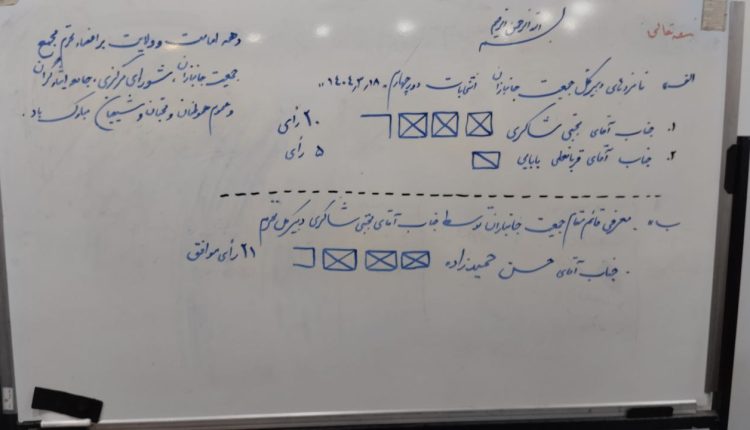 بسمه تعالی
بسم الله الرحمن الرحیم
دهه امامت و ولایت بر اعضاء محترم مجمع
جمعیت جانبازان، شورای مرکزی، جامعه ایثارگران
و عموم هموطنان و محبان و شیعیان مبارک باد.
الف» نامزدهای دبیرکل جمعیت جانبازان انتخابات دوره چهارم ۱۴۰۴،۳،۱۸
۱. جناب آقای مجتبی شاکری ۲۰ رأی
۲. جناب آقای قربانعلی بابایی ۵ رأی
ب» معرفی قائم مقام جمعیت جانبازان توسط جناب آقای مجتبی شاکری دبیرکل محترم
. جناب آقای حسن حمیدزاده ۲۱ رأی موافق